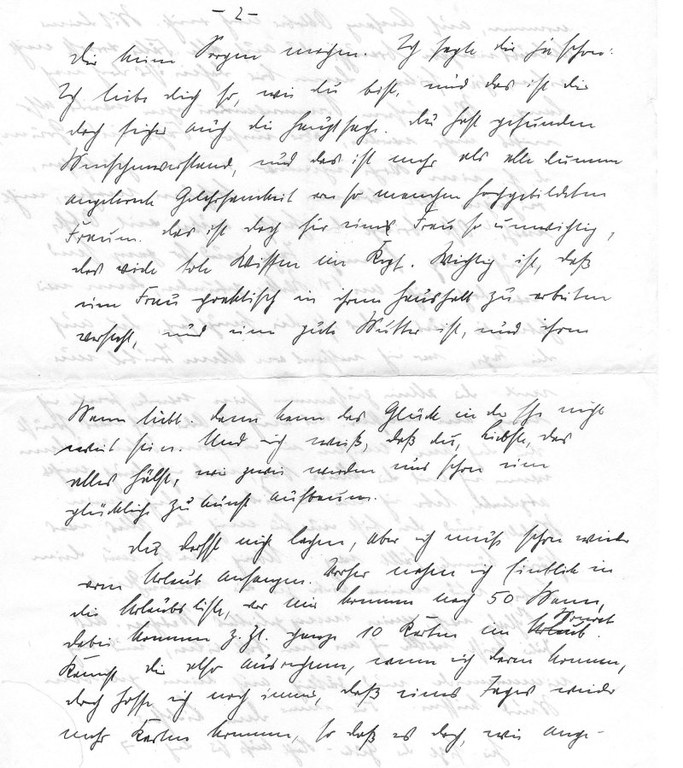 - 2 -
Dir keine Sorgen machen. Ich sagte dir ja schon:
Ich liebe dich so, wie du bist, und das ist die
doch sicher auch die Hauptsache. Du hast gesunden
Menschenverstand, und das ist mehr als alle dumme
angelernte Gelehrsamkeit von so manchen hochgebildeten
Frauen. Das ist doch für eine Frau so unwichtig,
das viele tote Wissen im Kopf. Wichtig ist, daß
eine Frau praktisch in ihrem Haushalt zu arbeiten
versteht, und eine gute Mutter ist, und ihren
Mann liebt. Dann kann das Glück in der Ehe nicht
weit sein. Und ich weiß, daß du, Liebste, das
alles hältst, wir zwei werden uns schon eine
glückliche Zukunft aufbauen.
Du darfst nicht lachen, aber ich muß schon wieder
vom Urlaub anfangen. Vorher nahm ich Einblick in
die Urlaubsliste, vor mir kommen noch 50 Mann,
dabei kommen z. Zt. ganze 10 Karten im Urlaub. Monat
Kannst dir also ausrechnen, wann ich dann komme,
doch hoffe ich noch immer, daß eines Tages wieder
mehr Karten kommen, so daß es doch, wie ange-